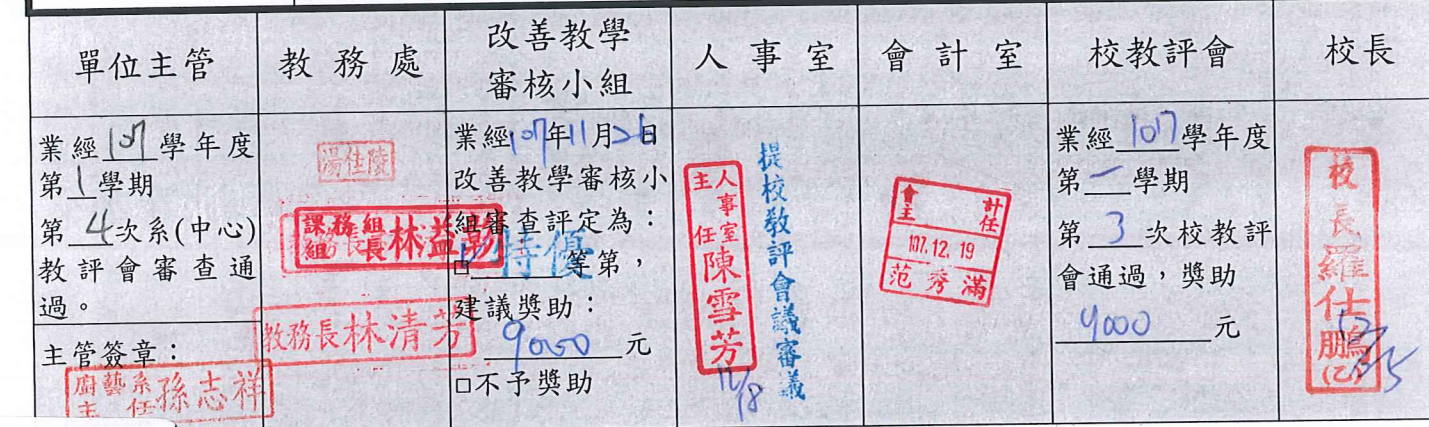 單位主管
教務處
改善教學
審核小組
人事室
會計室
校教評會
校長
業經107學年度
第1學期
第4次系(中心)
教評會審查通
過。
主管簽章：
廚藝系
主任
孫志祥
湯仕陵
課務組
組長
教務長林清芳
業經107年11月26日
改善教學審核小
組審查評定為：
□特優等第，
建議獎助：
9000元
□不予獎助
人事室
主任
陳雪芳
12/18
提校教評會議審議
會計
主任
107.12.19
范秀滿
業經107學年度
第一學期
第3次校教評
會通過，獎助
9000元
校長羅仕鵬(乙)